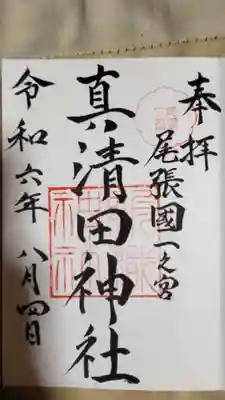 奉拝
尾張國一之宮
真清田神社
令和六年 八月四日